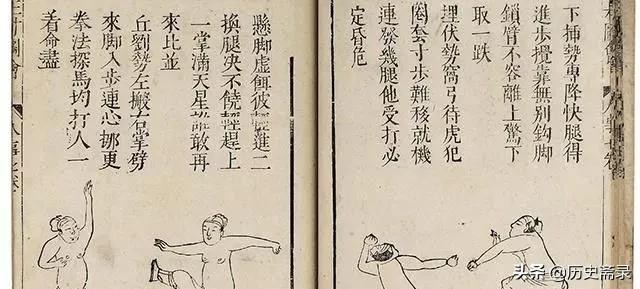 下插勢專降快腿得
進步攪靠無別鈎脚
鎖臂不容離上驚下
取一跌
埋伏勢窩弓待虎犯
圈套寸步難移就機
連發幾腿他受打必
定昏危
懸脚虛餌彼輕進二
換腿決不饒輕趕上
一掌滿天星誰敢再
來比並
丘劉勢左搬右掌劈
來脚入步連心挪更
拳法探馬均打人一
着命盡
头条 @历史斋录